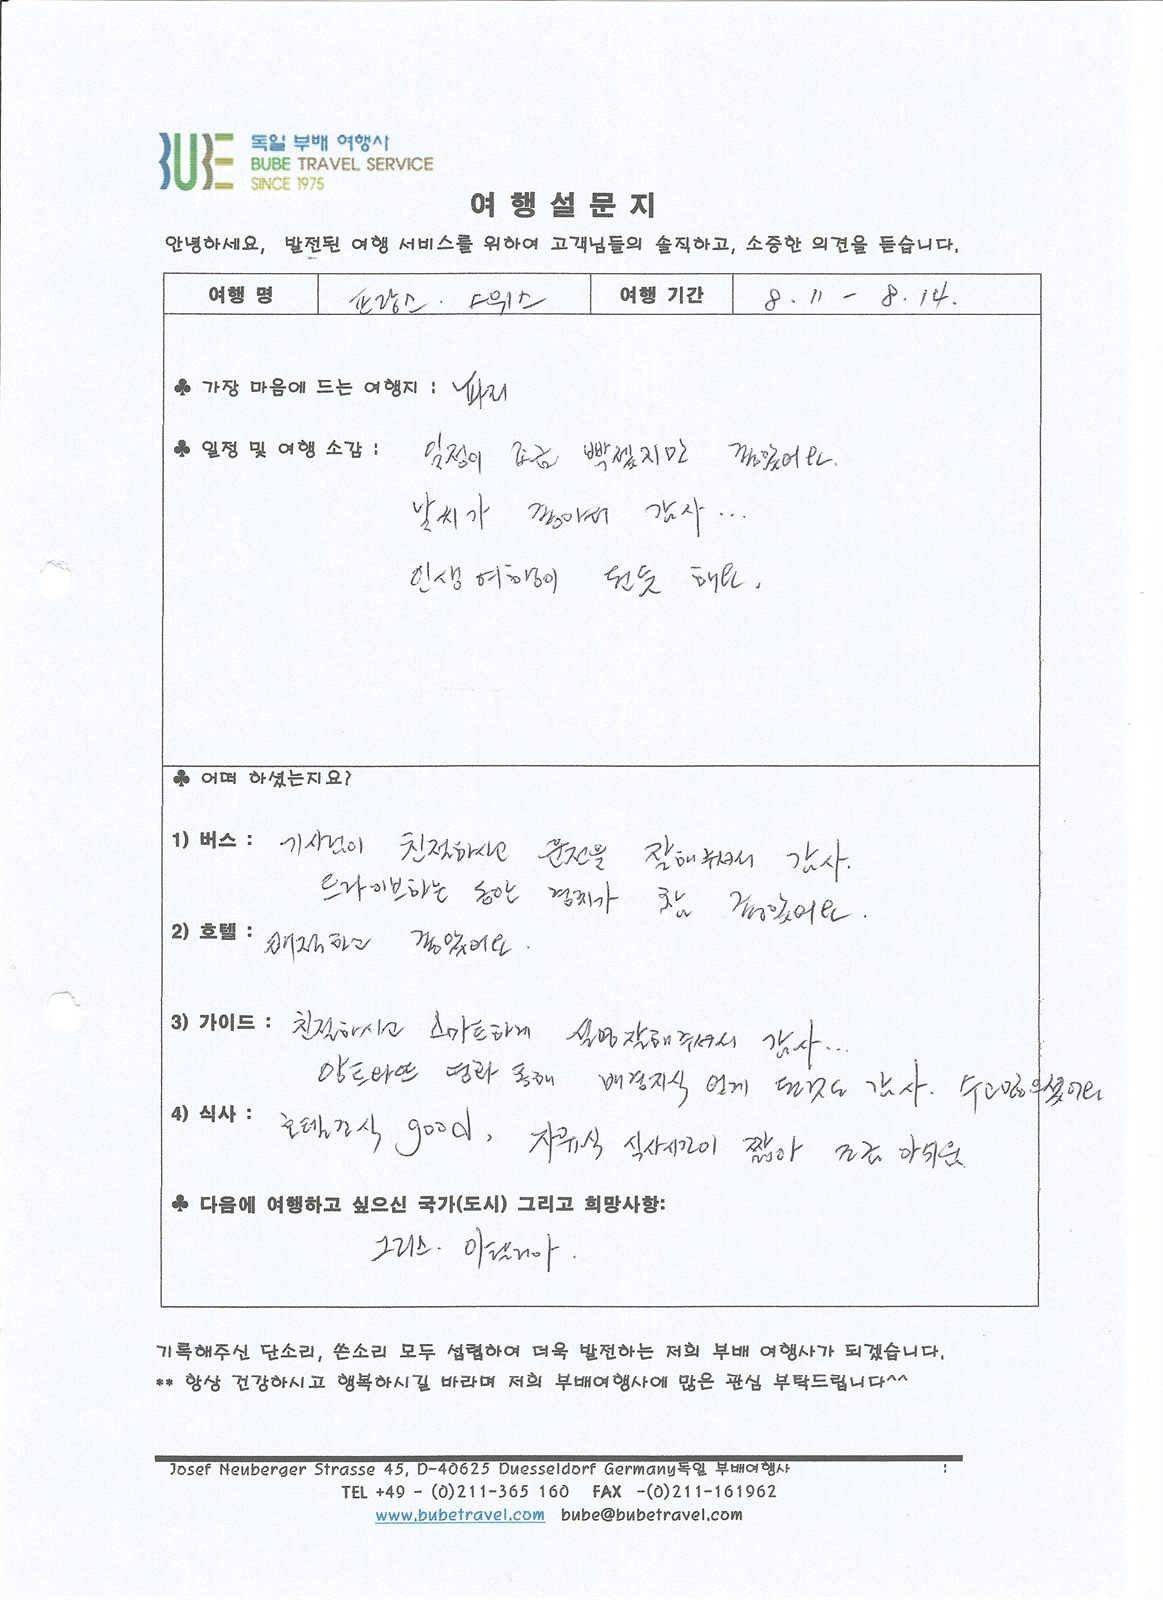 BUBE 독일 부배 여행사
BUBE TRAVEL SERVICE
SINCE 1975
여 행 설 문 지
안녕하세요, 발전된 여행 서비스를 위하여 고객님들의 솔직하고, 소중한 의견을 듣습니다.
여행 명 프랑스. 스위스 여행 기간 8. 11 - 8. 14.
♣ 가장 마음에 드는 여행지 : 파리
♣ 일정 및 여행 소감 : 일정이 조금 빡셌지만 좋았어요.
날씨가 좋아서 감사...
인생여행이 된듯 해요.
♣ 어떠 하셨는지요?
1) 버스 : 기사님이 친절하시고 운전을 잘해주셔서 감사.
드라이브하는 동안 경치가 참 좋았어요.
2) 호텔 : 쾌적하고 좋았어요.
3) 가이드 : 친절하시고 스마트하게 설명잘해주셔서 감사...
통해 배경지식 얻게 된것도 감사. 수고많으셨어요
4) 식사 : 호텔조식 good, 자유식 식사시간이 짧아 조금 아쉬움
♣ 다음에 여행하고 싶으신 국가(도시) 그리고 희망사항:
그리스. 이탈리아.
기록해주신 단소리, 쓴소리 모두 섭렵하여 더욱 발전하는 저희 부배 여행사가 되겠습니다.
** 항상 건강하시고 행복하시길 바라며 저희 부배여행사에 많은 관심 부탁드립니다^^
Josef Neuberger Strasse 45, D-40625 Duesseldorf Germany독일 부배여행사
TEL +49 - (0)211-365 160 FAX -(0)211-161962
www.bubetravel.com bube@bubetravel.com